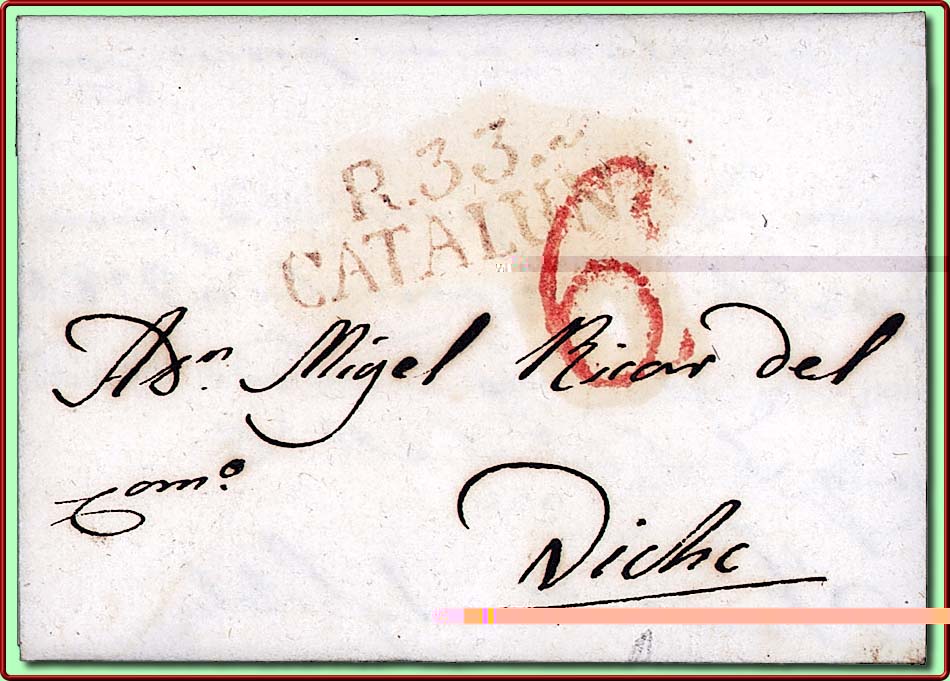 R.33.
CATALUÑ
6
A Dn. Migel Ricar del
Como.
Vichc